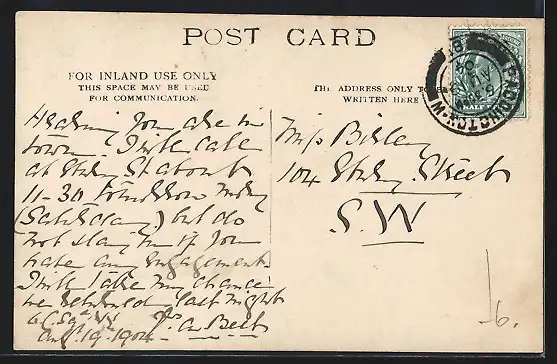 POST CARD
FOR INLAND USE ONLY
THIS SPACE MAY BE USED
FOR COMMUNICATION.
THE ADDRESS ONLY TO BE
WRITTEN HERE
PADDINGTON.W
HALF
Hearing you are in
town, I will call
at Ebury St about
11-30 tomorrow
(Saturday) but do
not stay in if you
have any engagement
I will take my chance
we returned last night
Aug 19. 1904
Miss Bisley
104 Ebury Street
S.W
6.